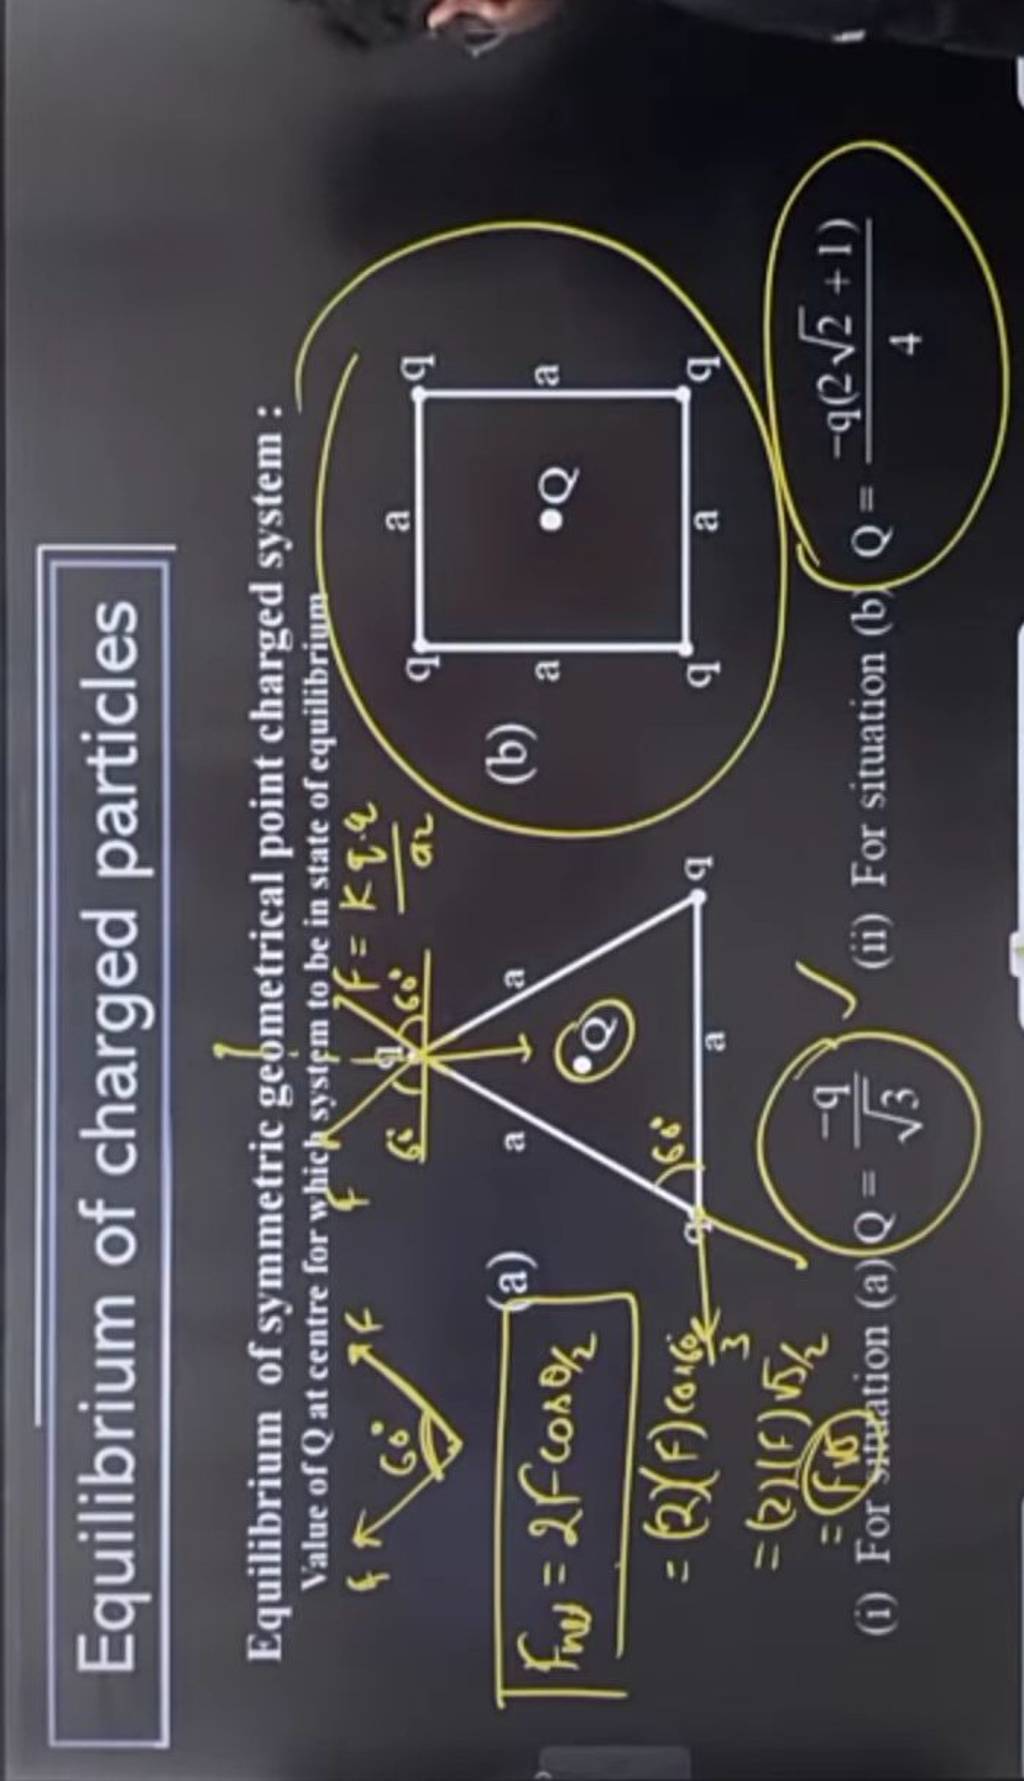 Equilibrium of charged particles
Equilibrium of symmetric geometrical point charged system :
Value of Q at centre for which system to be in state of equilibrium
F F
60°
F F = K q.q / a²
6° 60°
q
(a)
a a
•Q
60°
q q
a
Fnet = 2Fcosθ/2
= (2)(F)
= (2)(F)√3/2
= F√3
(b)
q a q
a •Q a
q a q
(i) For situation (a) Q = -q/√3
(ii) For situation (b) Q = -q(2√2 + 1)/4